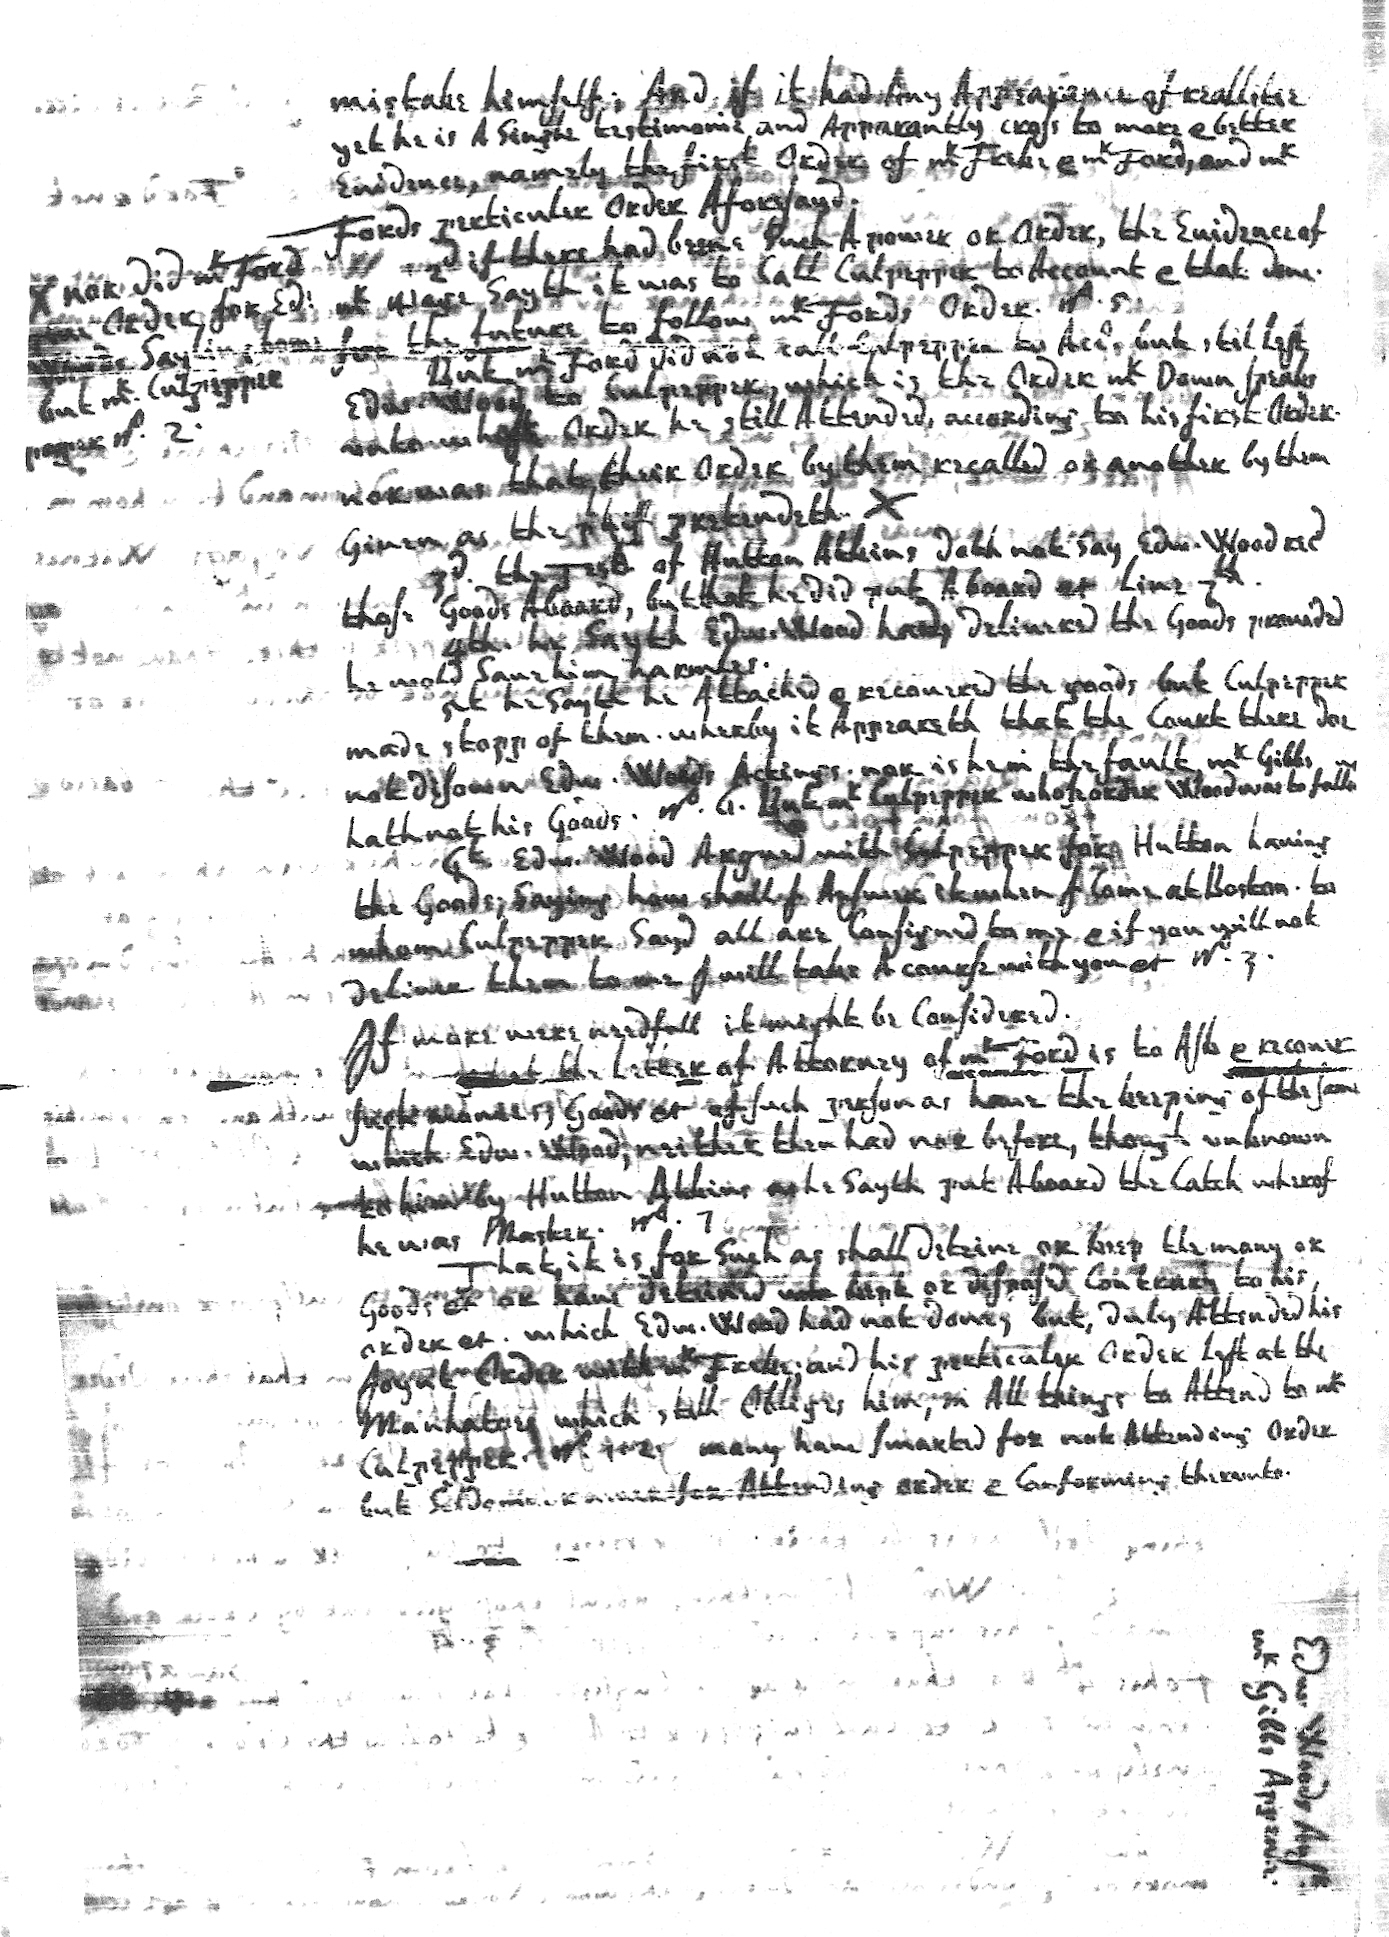 mistake himselfe; And if it had Any Appearance of reallitie
yet he is A Single testimonie and Apparantly cross to more & better
Euidence, namely the first Order of mr Freke & mr Ford, and mr
Fords perticuler Order Aforesayd.
2d if there had beene Such A power or Order, the Euidence of
mr Sayth it was to Call Culpepper to Account & that done
for the future to follow mr Fords Order. No. 5.
But mr Ford did not call Culpepper to Acct, but stil left
Edw. Wood to Culpepper, which is the Order mr Down speaks
unto whose Order he still Attended, according to his first Order.
nor was that their Order by them recalled or another by them
Giuen as the plff pretendeth. X
X nor did mr Ford
Order for Ed:
Sayling home
but mr. Culpepper
paper No. 2.
3d. the Test of Hutton Atkins doth not Say Edw. Wood recd
those Goods Aboard, but that he did put Aboard et line 3d.
4th. he Sayth Edw. Wood had deliuered the Goods prouided
he wold Saue him harmles.
yet he Sayth he Attached & recouered the goods but Culpepper
made stopp of them. wherby it Appeareth that the Court there doe
not disown Edw. Woods Actings. nor is he in the fault mr Gibbs
hath not his Goods. No. 4. But mr Culpepper whose order Wood was to follow
Edw. Wood Argued with Culpepper for Hutton hauing
the Goods; Saying how shall I Answer it when I Come at Boston. to
whom Culpepper Sayd all are Consigned to me & if you will not
deliuer them to me I will take A course with you et No. 3.
If more were needfull it might be Considered.
that the Letter of Attorney of mr Ford is to Ask & recouer
Goods et of such person as haue the keeping of the same
which Edw. Wood, neither then had nor before, though unknown
to him by Hutton Atkins as he Sayth put Aboard the Catch wherof
he was Master. No. 7
That, it is for Such as shall deteine or keep the mony or
Goods et or haue deteined kept or disposed Contrary to his
order et. which Edw. Wood had not done; but, duly Attended his
Joynt Order with mr Freke; and his perticuler Order left at the
Manhatoes which still Obliges him, in All things to Attend to mr
Culpepper. No. 1. 2. many haue smarted for not Attending Order
but Seldome for Attending order & Conforming therunto.
Edw. Woods Ansr.
mr Gibbs Appeale.